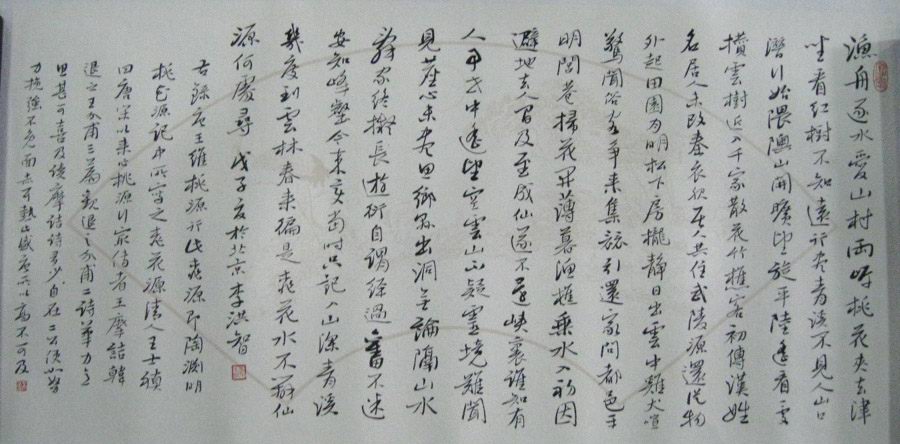 漁舟逐水愛山村兩岸桃花夾去津
坐看紅樹不知遠行盡青溪不見人山口
潛行始隈隩山開曠望旋平陸遙看一處
攢雲樹近入千家散花竹樵客初傳漢姓
名居人未改秦衣服居人共住武陵源還從物
外起田園月明松下房櫳靜日出雲中雞犬喧
驚聞俗客爭來集競引還家問都邑平
明閭巷掃花開薄暮漁樵乘水入初因
避地去人間及至成仙遂不還峽裏誰知有
人事世中遙望空雲山不疑靈境難聞
見塵心未盡思鄉縣出洞無論隔山水
辭家終擬長遊衍自謂經過舊不迷
安知峰壑今來變當時只記入山深青溪
幾度到雲林春來遍是桃花水不辨仙
源何處尋 戊子夏於北京李洪智
右錄唐王維桃源行此桃源即陶淵明
桃花源記中所寫之桃花源清人王士禎
曰唐宋以來作桃源行最佳者王摩詰韓
退之王介甫三篇觀退之介甫二詩筆力意
思甚可喜及讀摩詰詩多少自在二公便如努
力挽強不免面赤耳熱此盛唐所以高不可及